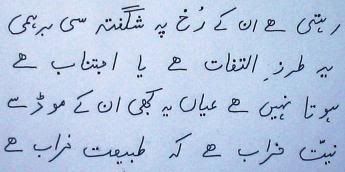 رہتی ہے ان کے رُخ پہ شگفتہ سی برہمی
یہ طرزِ التفات ہے یا اجتناب ہے
ہوتا نہیں ہے عیاں یہ کبھی ان کے موڈ سے
نیّت خراب ہے کہ طبیعت خراب ہے